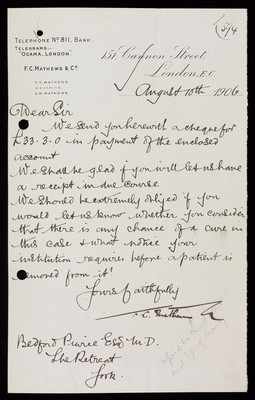 3/4
TELEPHONE Nº 811, BANK.
TELEGRAMS:-
"OGAMA, LONDON."
F. C. MATHEWS & Cº
F. C. MATHEWS
151, Cannon Street,
London, E.C.
August 10th 1906
Dear Sir
We send you herewith a cheque for
£33.3.0 in payment of the enclosed
account
We shall be glad if you will let us have
a receipt in due course
We should be extremely obliged if you
would let us know whether you consider
that there is any chance of a cure in
this case & what notice your
institution requires before a patient is
removed from it?
Yours faithfully
Bedford Pierce Esq M.D.
The Retreat
York.